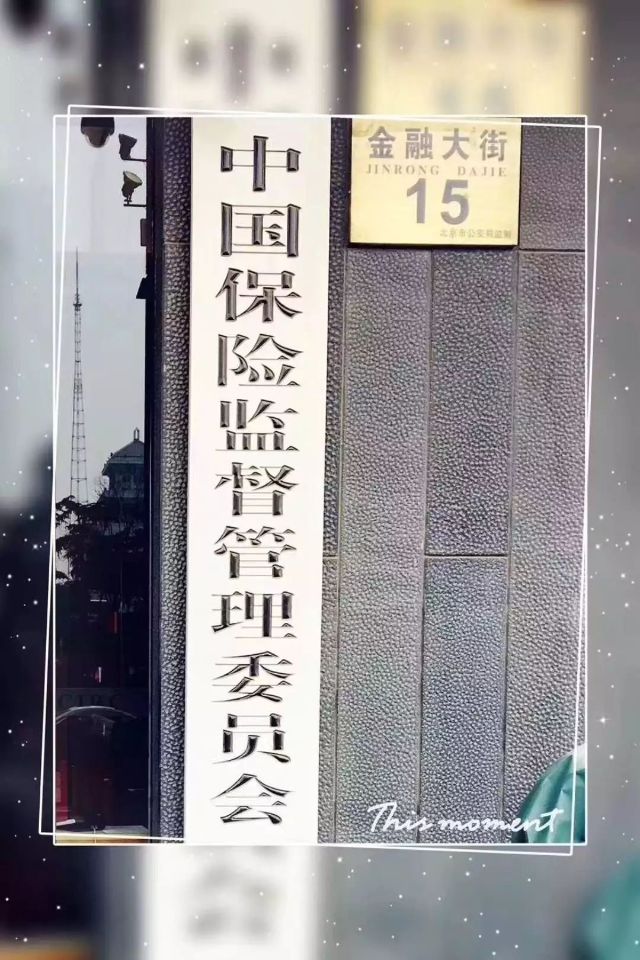 中国保险监督管理委员会
金融大街
JINRONG DAJIE
15
北京市公安局监制
CIRC
This moment